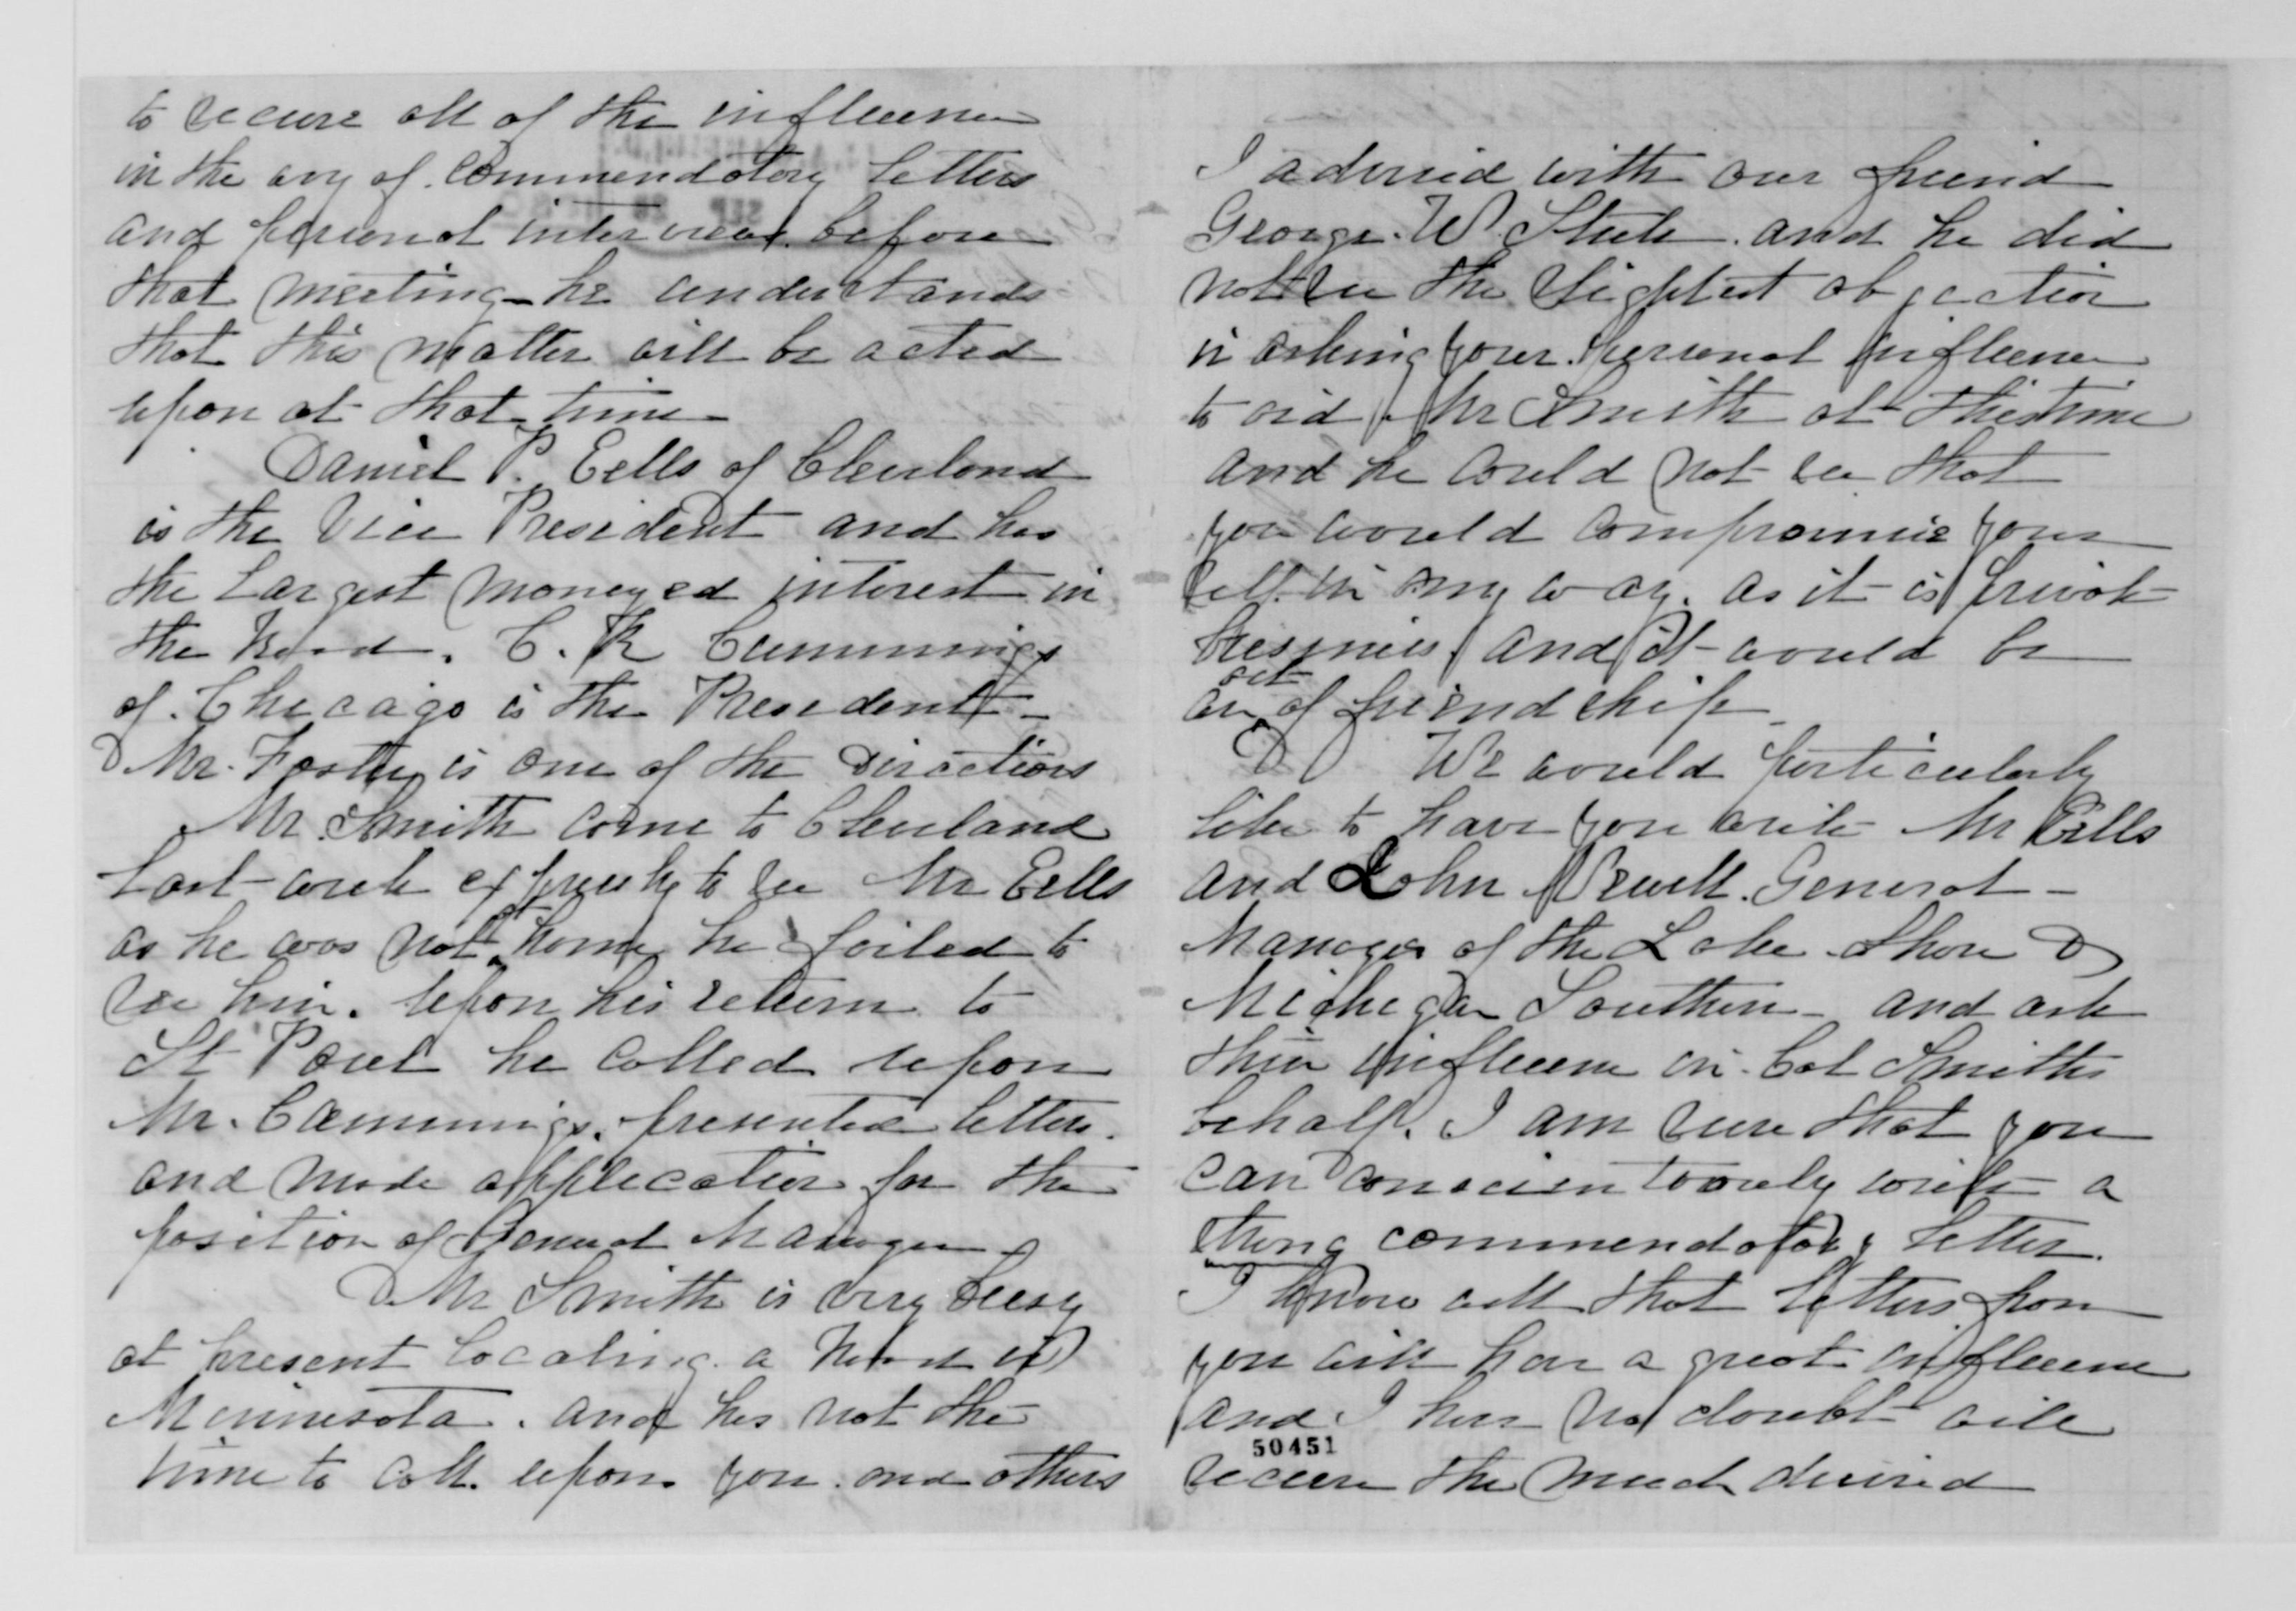 to secure all of the influence
in the way of commendatory letters
and personal interviews before
that meeting - he understands
that this matter will be acted
upon at that time
Daniel P. Eells of Cleveland
is the Vice President and has
the Largest moneyed interest in
the Road. C. R Cummings
of Chicago is the President -
Mr. Foster is one of the Directors
Mr Smith come to Cleveland
Last week expressly to see Mr Eells
as he was not at home he failed to
see him. Upon his return to
St Paul he called upon
Mr. Cummings. presented letters.
and made application for the
position of General Manager
Mr Smith is very busy
at present locating a Road in
Minnesota. and has not the
time to call upon you and others
I advised with our friend
George. W. Steele. and he did
not see the slightest objection
in asking your personal influence
to aid Mr Smith at this time
and he could not see that
you would compromise your
self in any way. as it is private
business and it would be
an act of friendship
We would particularly
like to have you write Mr Eells
and John Newell. General -
Manager of the Lake Shore &
Michigan Southern - and ask
their influence in Col Smiths
behalf. I am sure that you
can conscientiously write a
strong commendatory letter.
I know well that letters from
you will have a great influence
and I have no doubt will
50451
secure the much desired